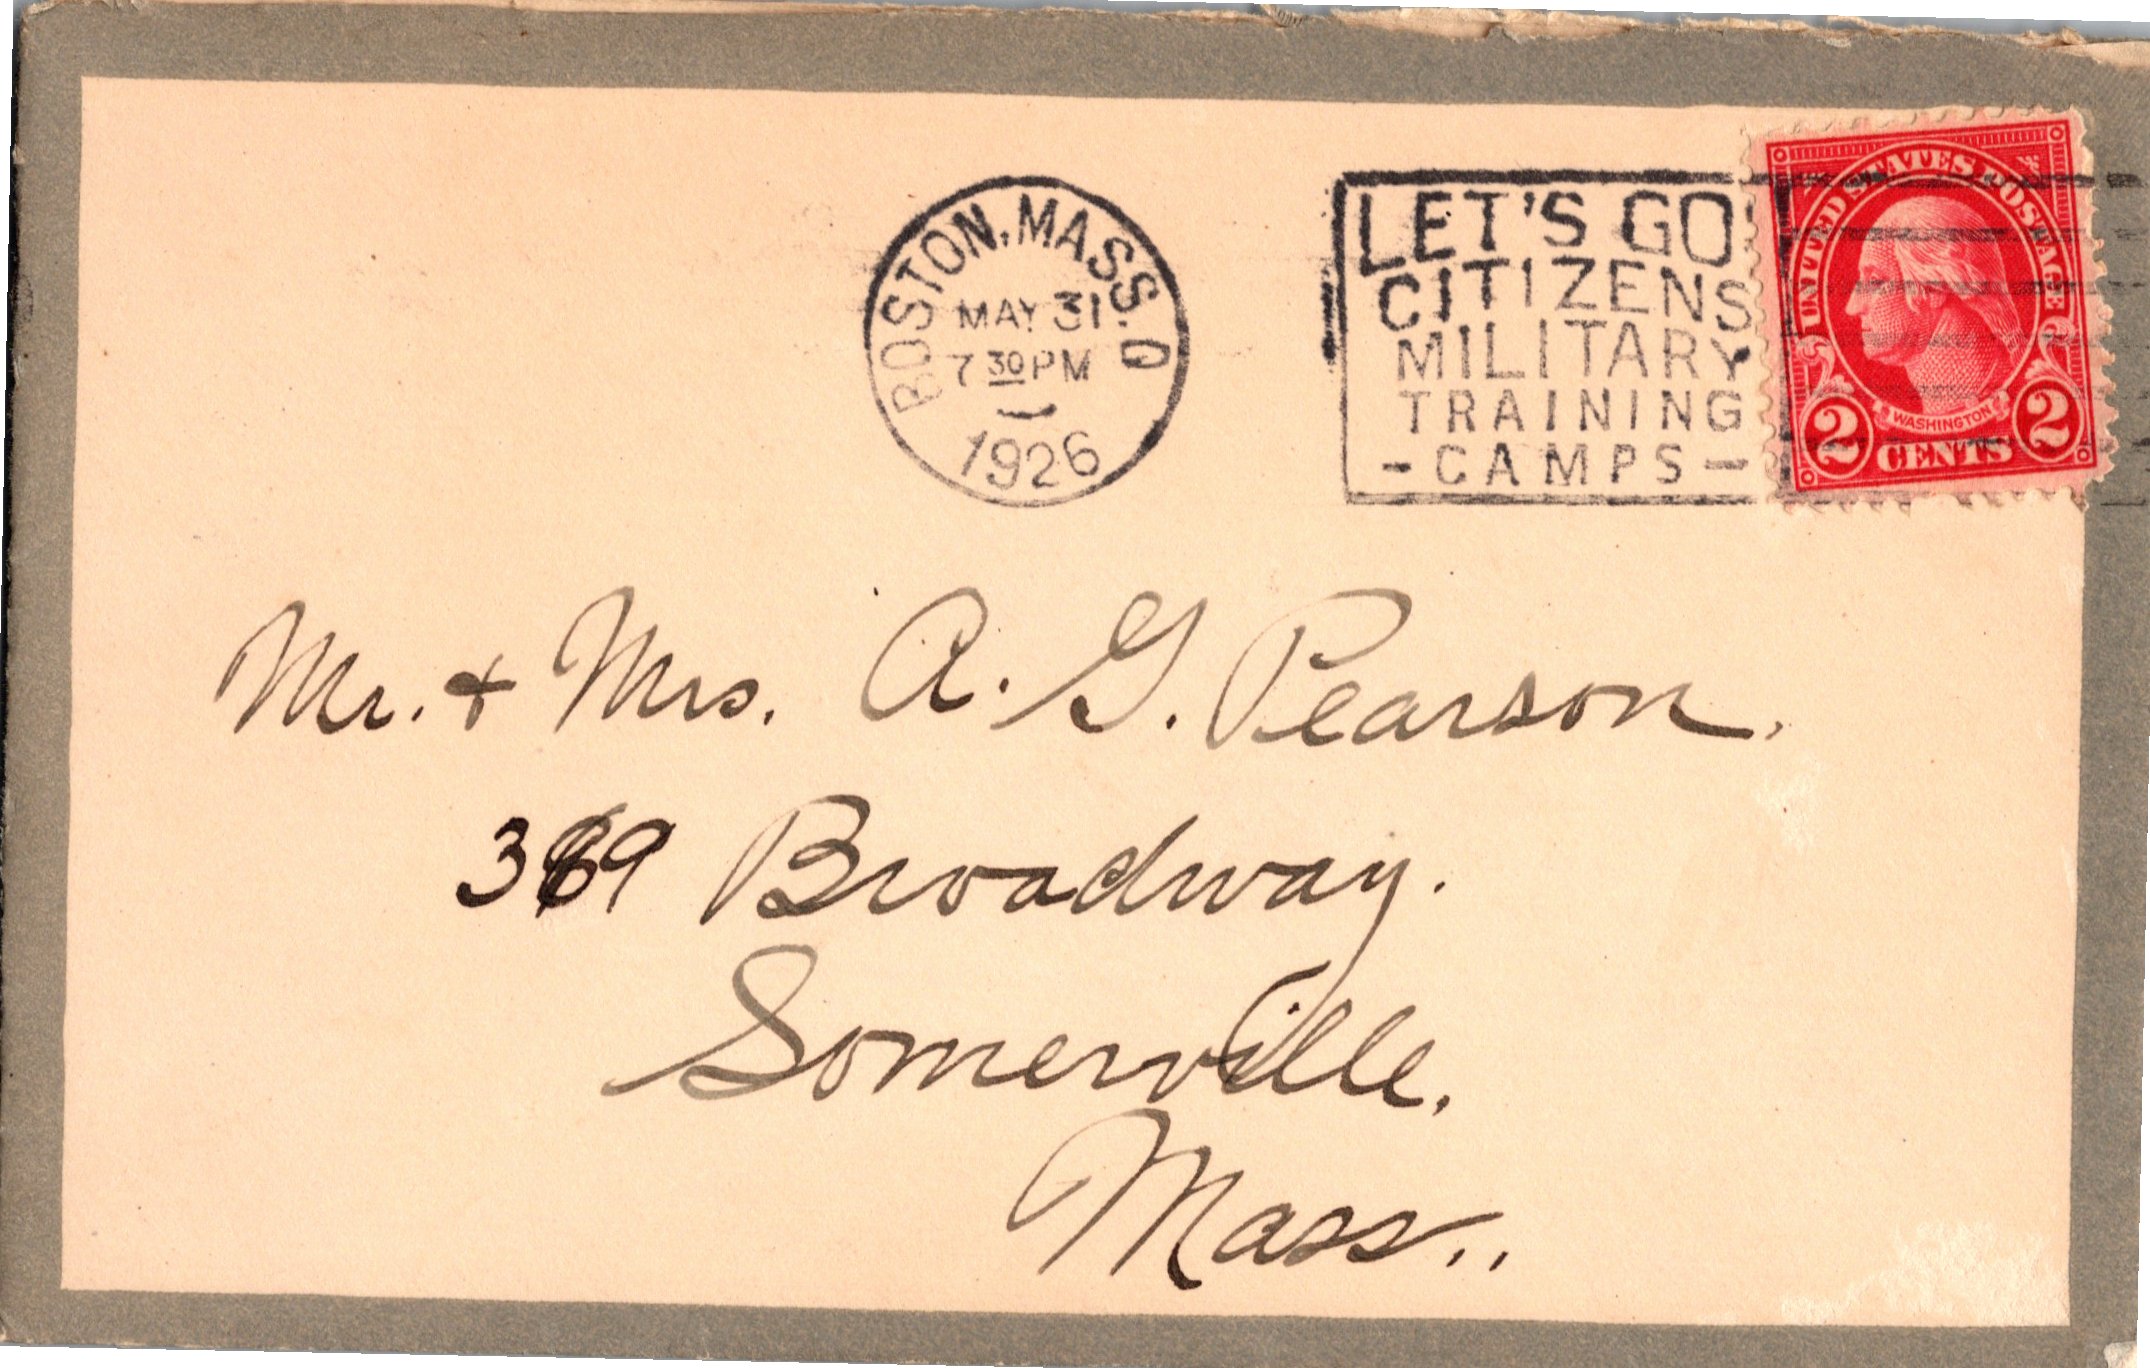 BOSTON, MASS.
MAY 31
7 30 PM
1926
LET'S GO
CITIZENS
MILITARY
TRAINING
- CAMPS -
UNITED STATES POSTAGE
WASHINGTON
2 CENTS 2
Mr. & Mrs. A. G. Pearson.
369 Broadway.
Somerville.
Mass..